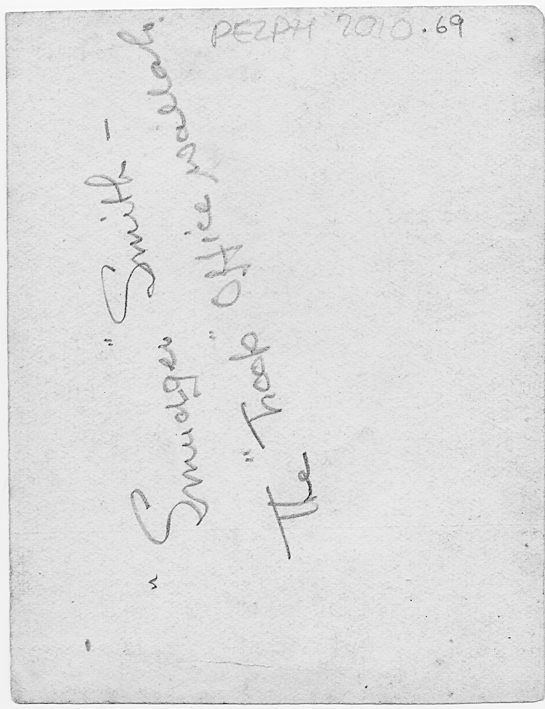 PEZPH 2010.69
"Smudger" Smith -
The "Troop" Office wallah.